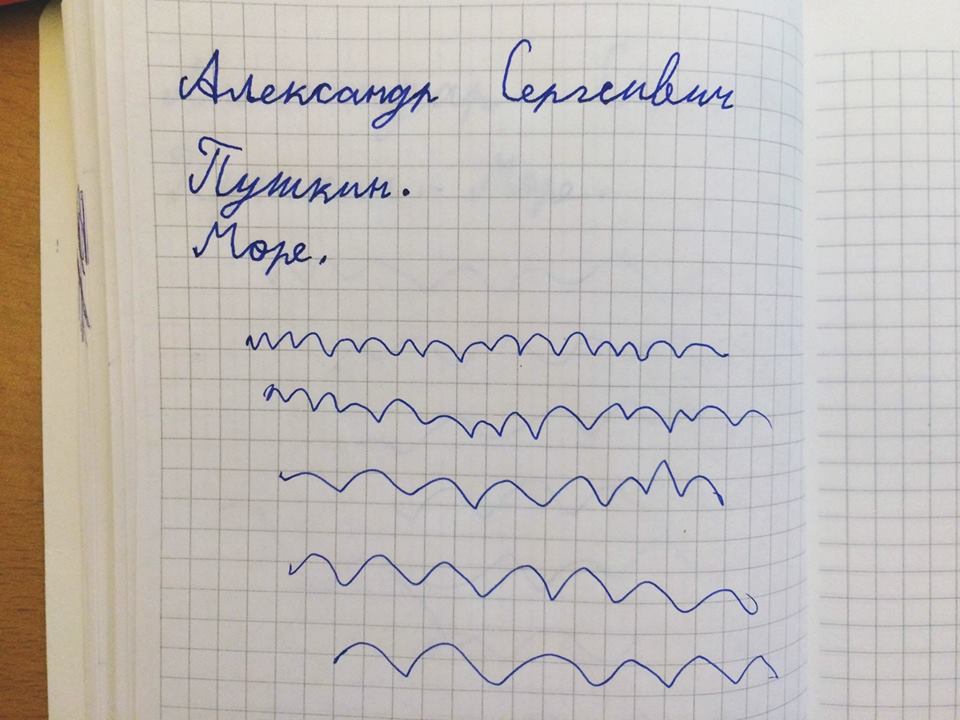 Александр Сергеевич
Пушкин.
Море.